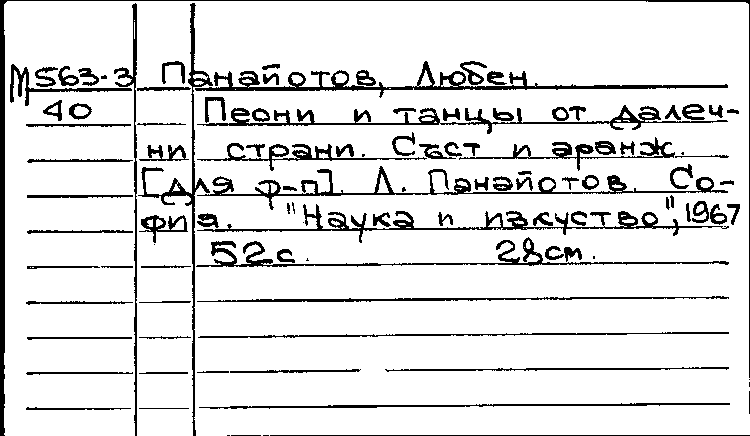 М563-3 Панайотов, Любен.
40 Песни и танцы от далеч-
ни страни. Съст и аранж.
[для ф-п]. Л. Панайотов. Со-
фия. "Наука и изкуство", 1967
52с. 28см.